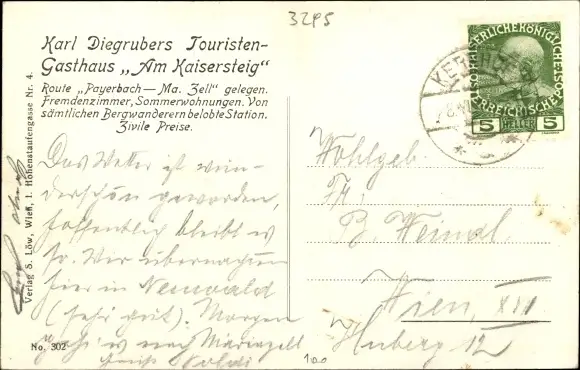 3295
Karl Diegrubers Touristen-
Gasthaus „Am Kaisersteig"
Route „Payerbach—Ma. Zell" gelegen.
Fremdenzimmer, Sommerwohnungen. Von
sämtlichen Bergwanderern belobte Station.
Zivile Preise.
Das Wetter ist wun-
derschön geworden,
hoffentlich bleibt es
so. Wir übernachten
hier in Neuwald
(sehr gut). Morgen
geht's nach Mariazell
No. 302
100
Verlag S. Löw, Wien, I. Hohenstaufengasse Nr. 4.
KAISERLICHE KÖNIGLICHE
ÖSTERREICHISCHE POST
5 HELLER 5
Wohlgeb.
Fr.
B. Weindl
Wien, XII
Huberg 12